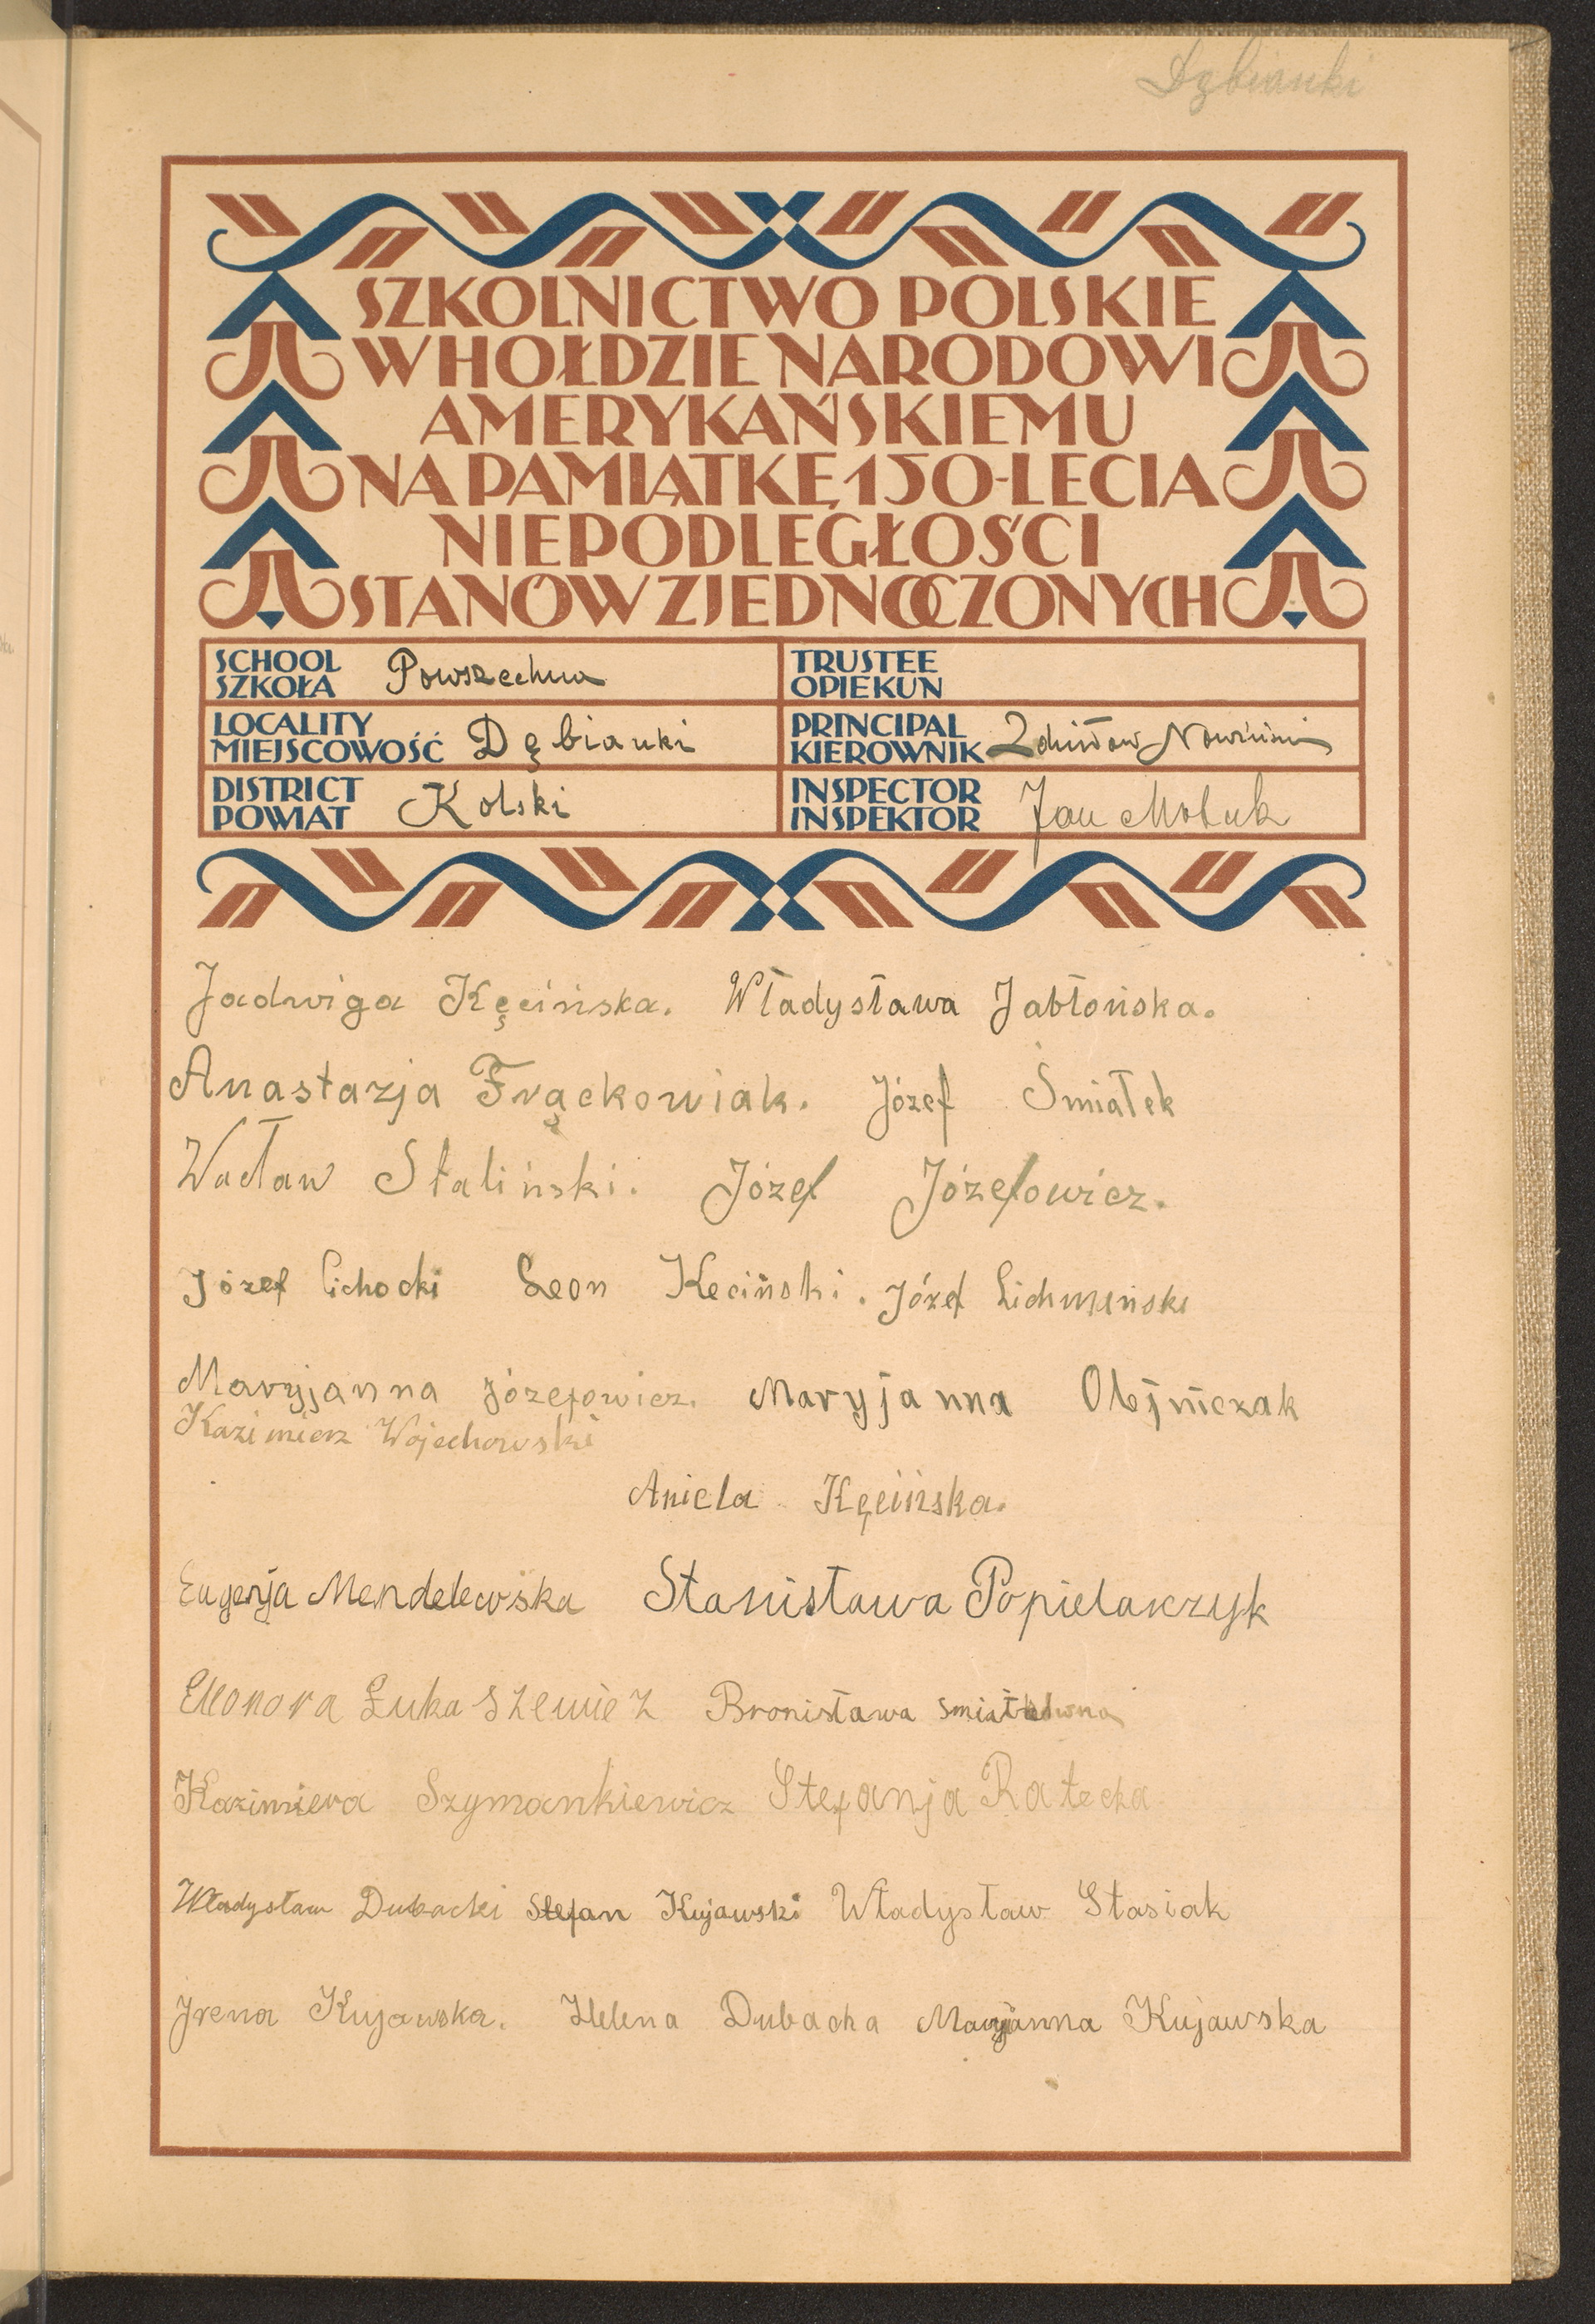 Dębianki
SZKOLNICTWO POLSKIE
W HOŁDZIE NARODOWI
AMERYKAŃSKIEMU
NA PAMIĄTKĘ 150-LECIA
NIEPODLEGŁOŚCI
STANÓW ZJEDNOCZONYCH
SCHOOL
SZKOŁA Powszechna
TRUSTEE
OPIEKUN
LOCALITY
MIEJSCOWOŚĆ Dębianki
PRINCIPAL
KIEROWNIK Zdzisław
DISTRICT
POWIAT Kolski
INSPECTOR
INSPEKTOR Jan
Jadwiga Kęcińska. Władysława Jabłońska.
Anastazja Frąckowiak. Józef Śmiałek
Wacław Staliński. Józef Józefowicz.
Józef Cichocki Leon Keciński. Józef Lichmiński
Maryjanna Józefowicz. Maryjanna Olejniczak
Kazimierz Wojechowski
Aniela Kęcińska.
Eugenja Mendelewska Stanisława Popielarczyk
Eleonora Łukaszewicz Bronisława
Kazimiera Szymankiewicz Stefanja Ratecka
Władysław Dubacki Stefan Kujawski Władysław Stasiak
Irena Kujawska. Helena Dubacka Maryjanna Kujawska